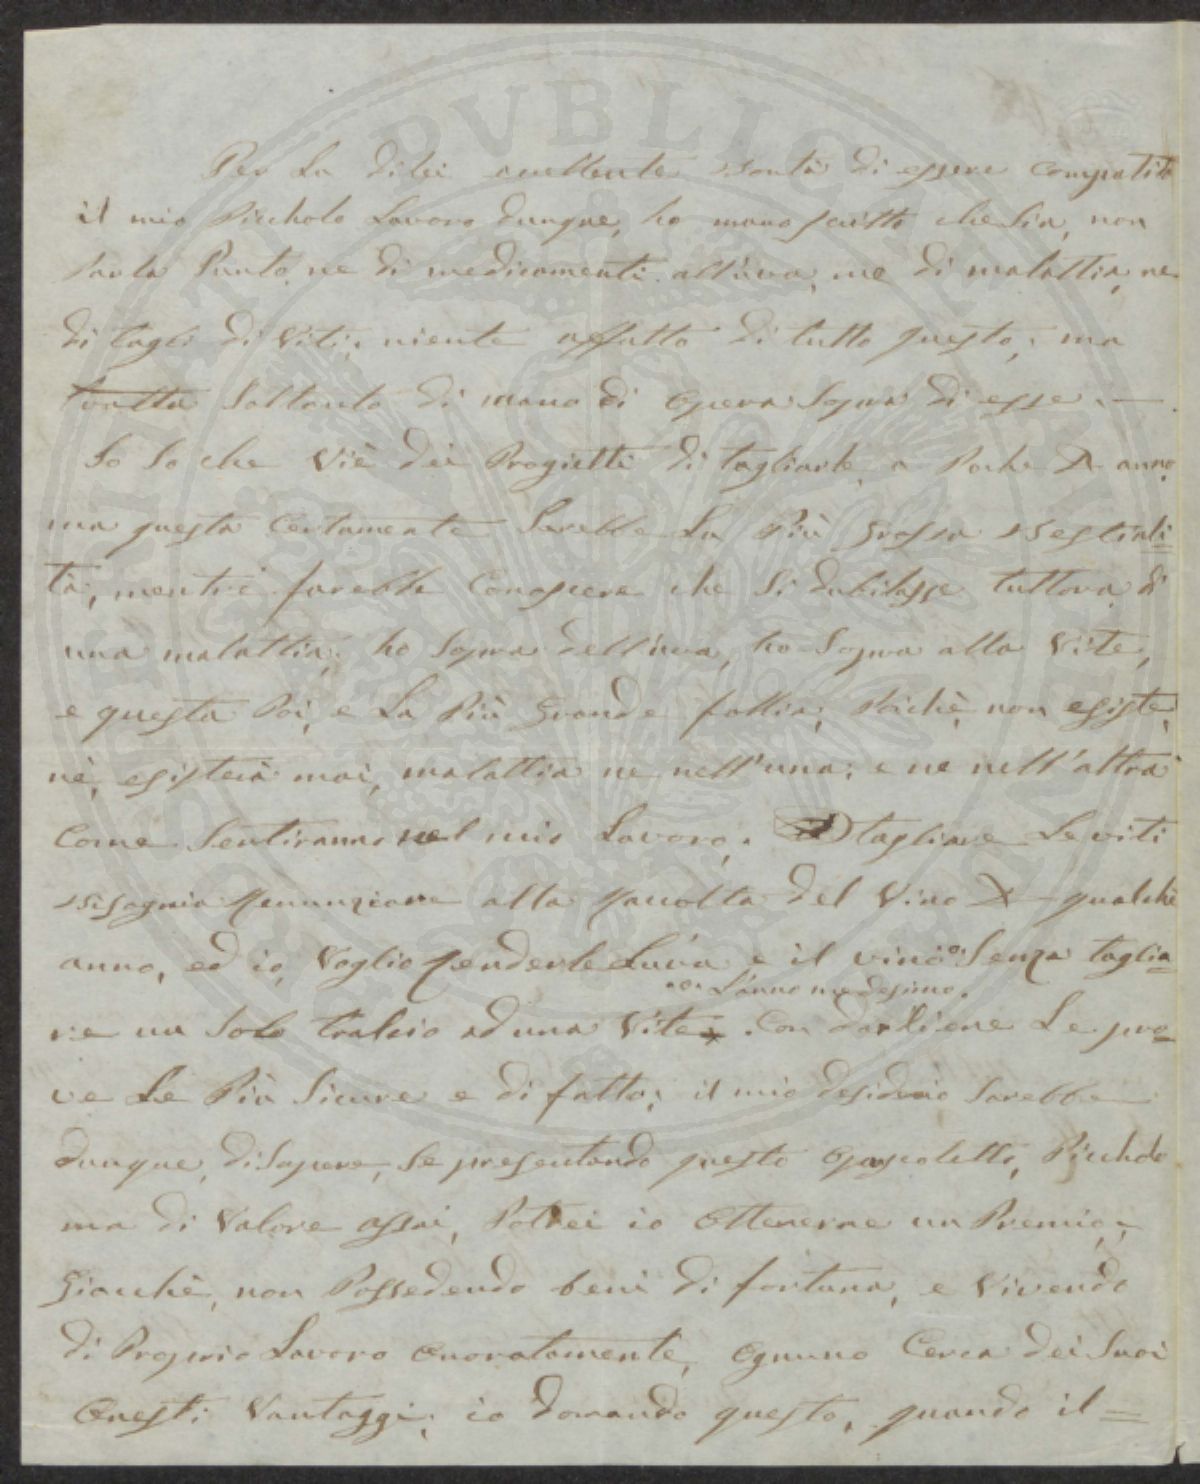 Per La dilei eccellente Bontà di essere compatito
il mio Piccholo Lavoro dunque, ho mano scritto che sia, non
Parla Punto, ne di medicamenti all'uva, ne di malattia, ne
di tagli di Viti, niente affatto di tutto questo, ma
tratta Soltanto di mano di opera Sopra di esse. —
Io So che Viè dei Progietti di tagliarle, a Poche anno,
ma questa Certamente Sarebbe La Più Grossa Bestiali=
tà, mentre farebbe Conoscere che Si dubitasse tuttora, di
una malattia, ho Sopra dell'uva, ho Sopra alla Vite,
e questa Poi, e La Più Grande follia, Poichè, non esiste,
nè, esisterà mai, malattia ne nell'una, e ne nell'altra
Come Sentiranno nel mio Lavoro. tagliare Le viti
Bisognia Renunziare alla Raccolta del Vino qualche
anno, ed io, Voglio Renderle L'uva e il vino Senza taglia=
L'anno medesimo.
re un Solo tralcio ad una Vite. Con darliene Le pro=
ve Le Più Sicure e di fatto; il mio desiderio Sarebbe
dunque, diSapere, Se presentando questo Opuscoletto, Piccholo
ma di Valore assai, Potrei io Ottenerne un Premio,
Giacchè, non Possedendo beni di fortuna, e Vivendo
di Proprio Lavoro Onoratamente, Ognuno Cerca dei Suoi
Onesti Vantaggi; io domando questo, quando il=
PVBLICA